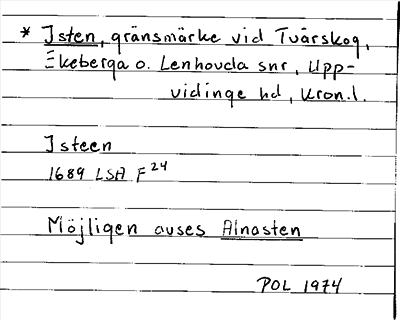 * Isten, gränsmärke vid Tvärskog,
Ekeberga o. Lenhovda snr, Upp-
vidinge hd, Kron.l.
Isteen
1689 LSA F 24
Möjligen avses Alnasten
POL 1974